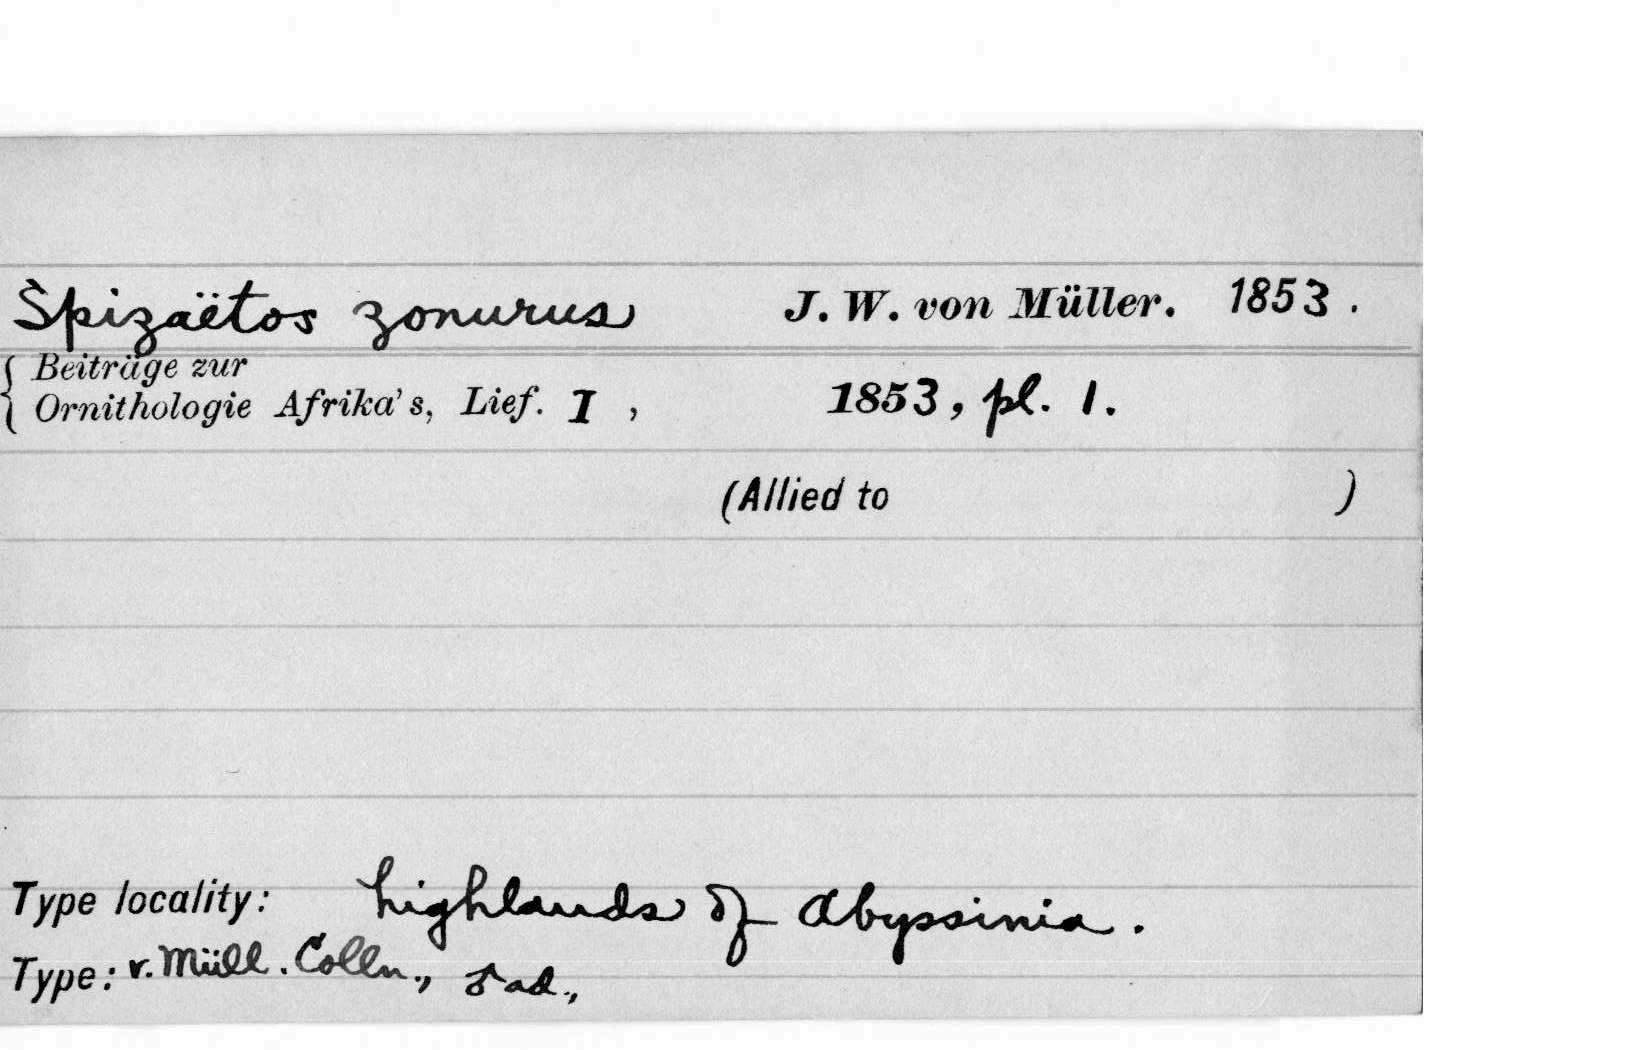 Spizaëtos zonurus J. W. von Müller. 1853.
Beiträge zur
Ornithologie Afrika's, Lief. I, 1853, pl. 1.
(Allied to )
Type locality: highlands of Abyssinia.
Type: v. Müll. Colln., ♂ ad.,